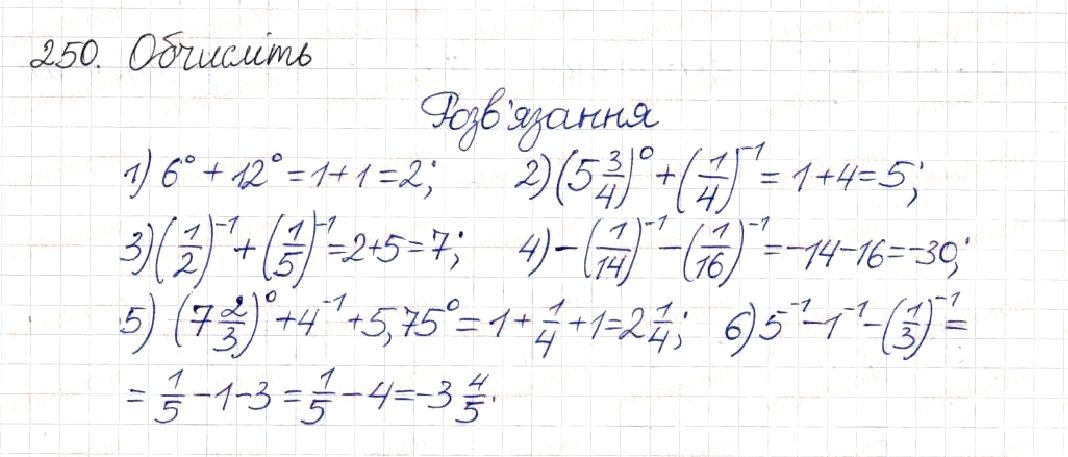 250. Обчисліть
Розв'язання
1) 6⁰ + 12⁰ = 1 + 1 = 2; 2) (5 3/4)⁰ + (1/4)⁻¹ = 1 + 4 = 5;
3) (1/2)⁻¹ + (1/5)⁻¹ = 2 + 5 = 7; 4) - (1/14)⁻¹ - (1/16)⁻¹ = -14 - 16 = -30;
5) (7 2/3)⁰ + 4⁻¹ + 5,75⁰ = 1 + 1/4 + 1 = 2 1/4; 6) 5⁻¹ - 1⁻¹ - (1/3)⁻¹ =
= 1/5 - 1 - 3 = 1/5 - 4 = -3 4/5.